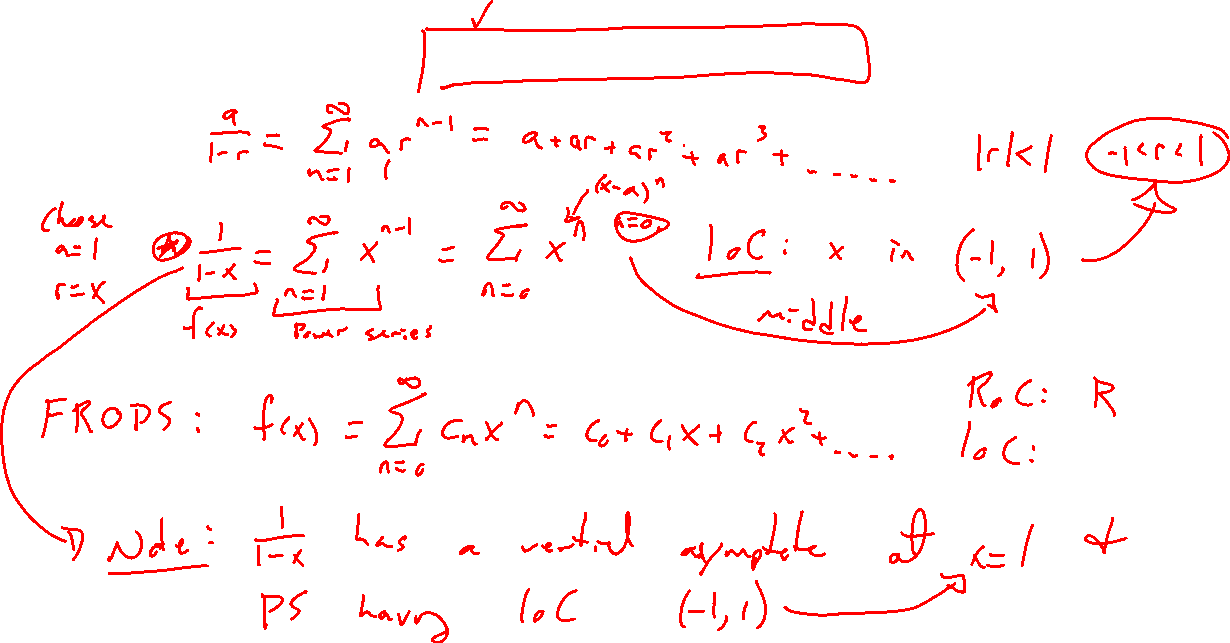 a/(1-r) = ∞ Σ n=1 a r^(n-1) = a + ar + ar² + ar³ + ..... |r|<1 -1<r<1
choose a=1 r=x
(x-a)^n
⊛ 1/(1-x) = ∞ Σ n=1 x^(n-1) = ∞ Σ n=0 x^n a=0 IoC: x in (-1, 1)
f(x) Power series middle
FROPS: f(x) = ∞ Σ n=0 Cₙxⁿ = C₀ + C₁x + C₂x² + ..... RoC: R
IoC:
Note: 1/(1-x) has a vertical asymptote at x=1 &
PS having IoC (-1, 1)